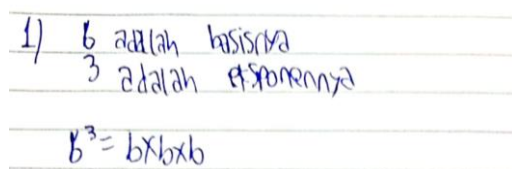 1) b adalah basisnya
3 adalah eksponennya
b³ = b×b×b